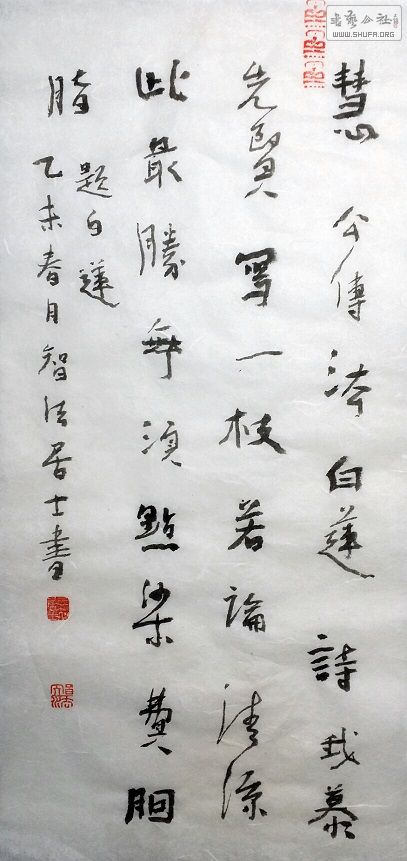 慧公傳白蓮詩我慕
先賢寫一枝若論清涼
此最勝無須點染費胭
脂
題白蓮
乙未春月智法居士書
書藝公社
WWW.SHUFA.ORG